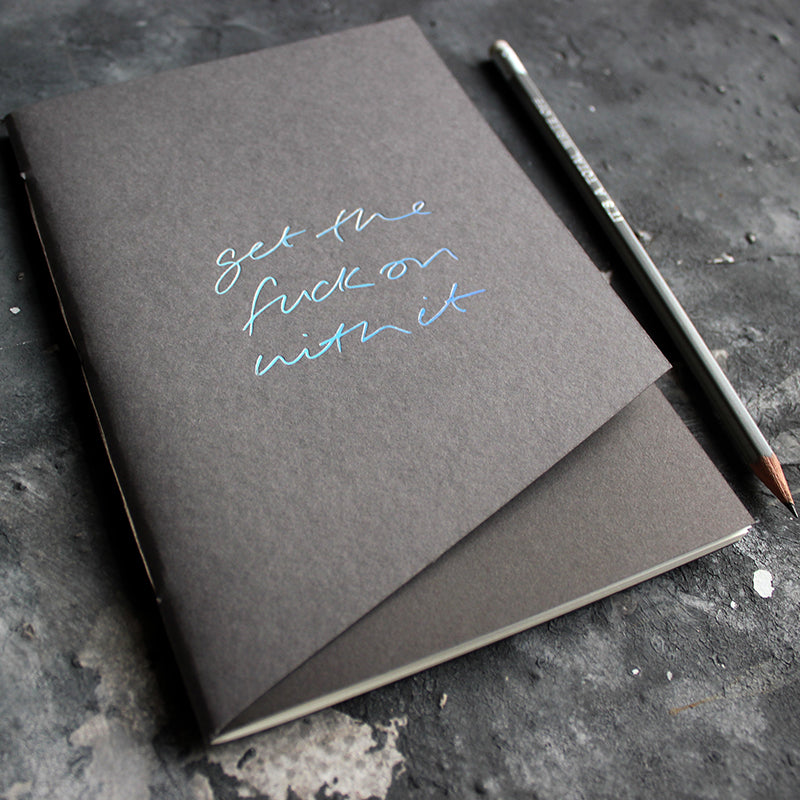 get the
fuck on
with it